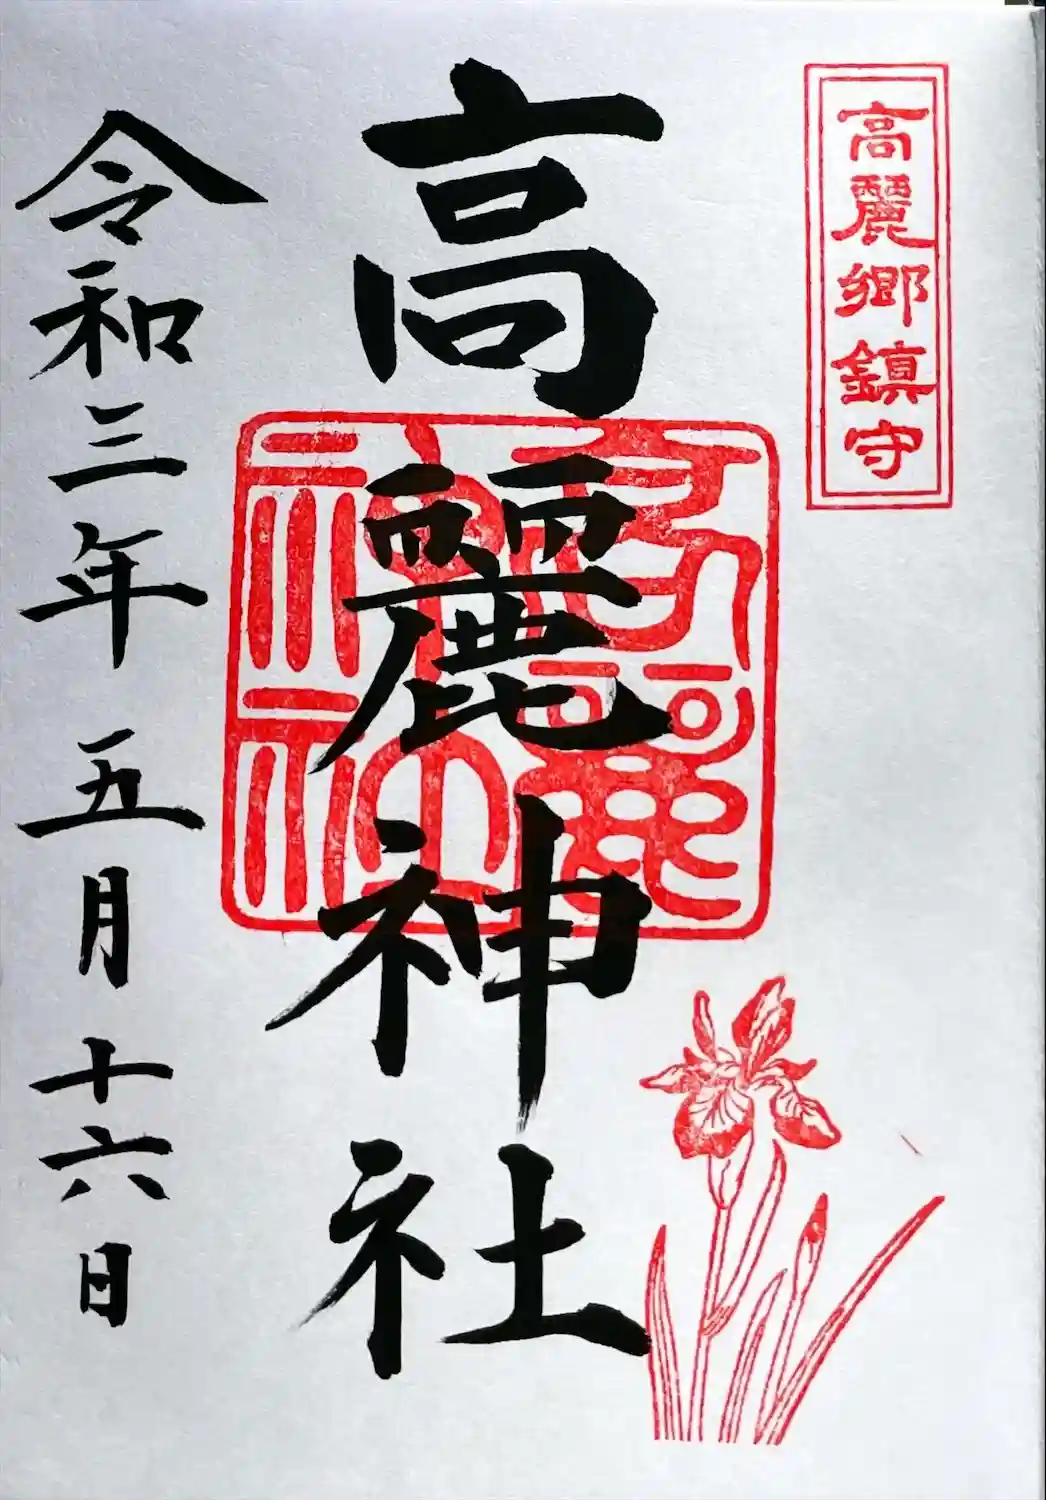 高麗郷鎮守
高麗神社
高麗神社
令和三年五月十六日